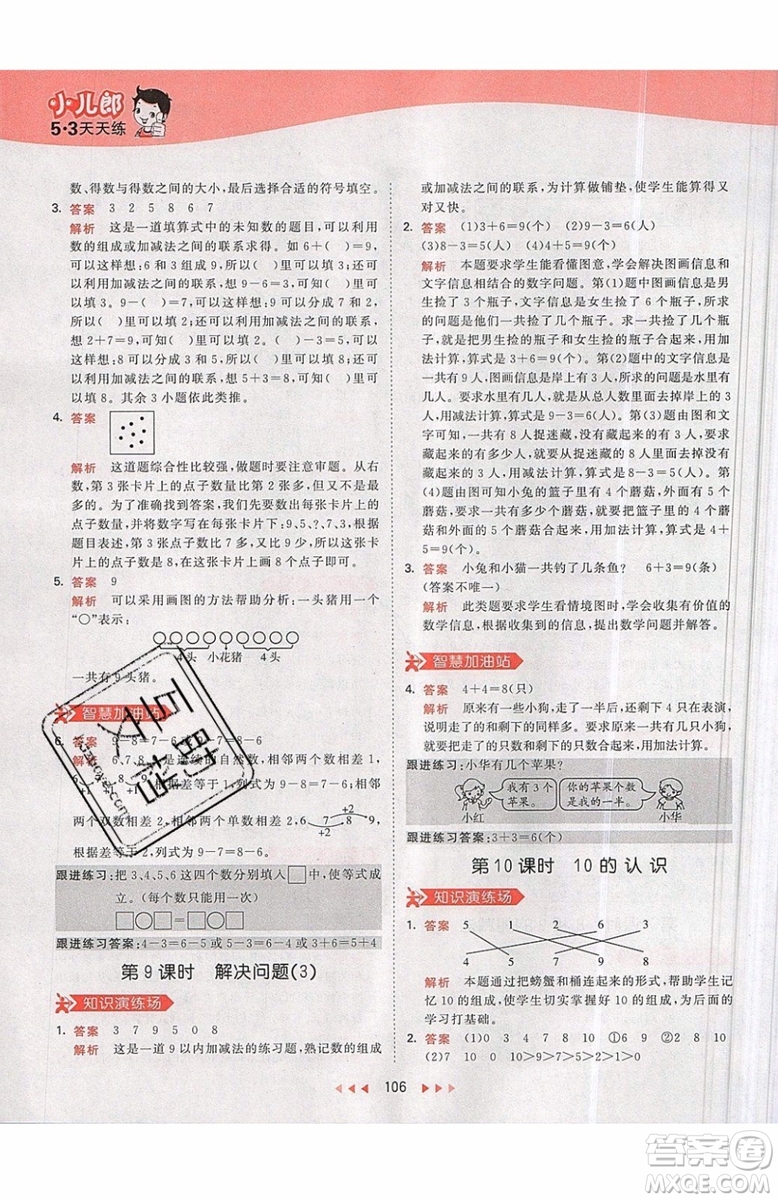 小儿郎
5·3天天练
数、得数与得数之间的大小,最后选择合适的符号填空。
3. 答案 3 2 5 8 6 7
解析 这是一道填算式中的未知数的题目,可以利用
数的组成或加减法之间的联系求得。如 6+( )=9,
可以这样想:6 和 3 组成 9,所以( )里可以填 3,也
可以利用加减法之间的联系,想 9-6=3,所以( )里
可以填 3。9-( )=7,可以这样想:9 可以分成 7 和 2,
所以( )里可以填 2,还可以利用加减法之间的联系,
想 9-7=2,所以( )里可以填 2。( )-3=5,可以
这样想:8 可以分成 3 和 5,所以( )里可以填 8,还可
以利用加减法之间的联系,想 5+3=8,所以( )里可
以填 8。其余 3 小题依此类推。
4. 答案
解析 这道题综合性比较强,做题时要注意审题。从右
数,第 3 张卡片上的点子数量比第 2 张少,但又不是最
少的。为了快速找到答案,可以先数出每张卡片上的
点子数量,并将数字写在每张卡片下:9、?、7、9,根据
题目表述,第 3 张比 7 大,又比 9 少,所以这张卡片
上的点子数是 8,在这张卡片上画 8 个点子即可。
5. 答案 9
解析 可以采用画图的方法帮助分析:一头猪用一个
“○”表示:
4头 小花猪 4头
一共有 9 头猪。
智慧加油站
6. 答案 9-8=7-6 9-7=8-6
解析 6、7、8、9 是连续的自然数,相邻两个数相差 1,
根据差等于 1,列式为 9-8=7-6,相邻
+2
两个双数相差 2,相邻两个单数相差 2,6 7 8 9,
+2
根据差等于 2,列式为 9-7=8-6。
跟进练习:把 3、4、5、6 这四个数分别填入□,使等式成
立。(每个数只能用一次)
□○□=□○□
跟进练习答案:4-3=6-5或5-3=6-4或3+6=5+4
第 9 课时 解决问题(3)
知识演练场
1. 答案 3 7 9 5 0 8
解析 这是一道 9 以内加减法的练习题,熟记数的组成
或加减法之间的联系,为计算做铺垫,使学生能算得又
对又快。
2. 答案 (1)3+6=9(个) (2)9-3=6(人)
(3)8-3=5(人) (4)5+4=9(个)
解析 本题要求学生能看懂图意,学会解决图画信息和
文字信息相结合的数学问题。第(1)题中图画信息是男
生捡了 3 个瓶子,文字信息是女生捡了 6 个瓶子,要求
的问题是他们一共捡了几个瓶子。求一共捡了几个瓶
子,就是把男生捡的瓶子和女生捡的瓶子合起来,用加
法计算,算式是 3+6=9。第(2)题中的文字信息是一共
有 9 人,图画信息是岸上有 3 人,求的问题是水里有几
人。求水里有几人,就是从总人数里面去掉岸上的 3
人,用减法计算,算式是 9-3=6。第(3)题中由图和文
字可知一共有 8 人捉迷藏,没有藏起来的有 3 人,求藏
起来的有几人,就是从总人数里面去掉没有藏起来的 3
人,用减法计算,算式是 8-3=5。
(4)题由图可知小兔的篮子里有 4 个蘑菇,外面有 5 个
蘑菇,求一共有几个蘑菇,就是把篮子里的蘑菇和外面
的蘑菇合起来,用加法计算,算式是 5+4=9。
3. 答案 小兔和小猫一共钓了几条鱼? 6+3=9(条)
(答案不唯一)
解析 此类题要求学生看情境图时,收集有价值的
数学信息,根据收集到的信息,提出数学问题并解答。
智慧加油站
4. 答案 4+4=8(只)
解析 原来有一些小狗,走了一半后,还剩 4 只,
说明走了的和剩下的同样多。要求原来有几只小狗,
用走了的只数和剩下的只数合起来,用加法计算。
跟进练习:小华有几个苹果?
我有 3 个
苹果。
你的苹果个数
是我的一半。
小红 小华
跟进练习答案:3+3=6(个)
第 10 课时 10 的认识
知识演练场
1. 答案 5 1 2 6 3
4 5 7 9 8
解析 本题通过把螃蟹和桶连起来的形式,帮助学生记
忆 10 的组成,使学生能够扎实掌握 10 的组成,为后面的
学习打基础。
2. 答案 (1)0 3 4 7 8 10 ①6 9 ②8 9
(2)7 10 0 10>9>8>7>4>3>2>1>0
106
答案圈
MXQE.COM